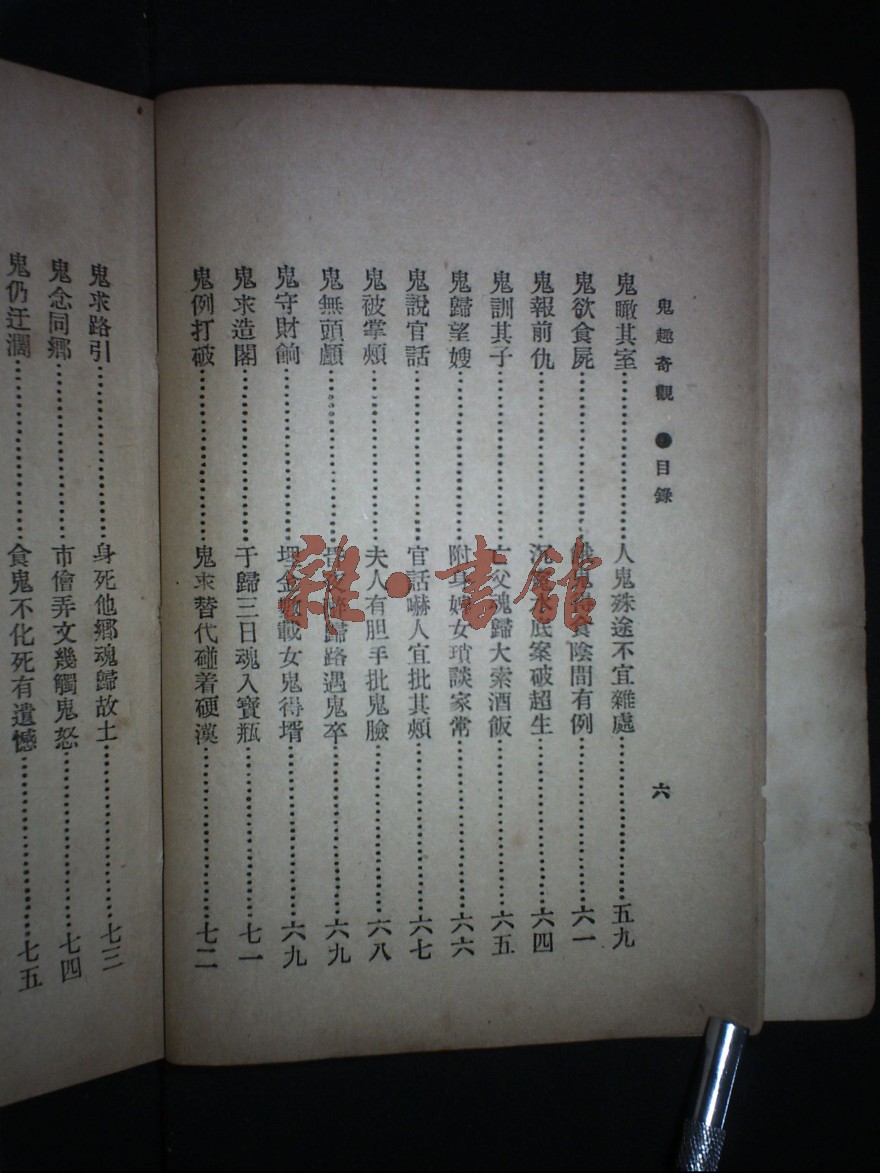 鬼趣奇觀 ●目錄 六
鬼瞰其室 人鬼殊途不宜雜處 五九
鬼欲食屍 食陰間有例 六一
鬼報前仇 沉 水底案破超生 六四
鬼訓其子 亡父魂歸大索酒飯 六五
鬼歸望嫂 附身婢女瑣談家常 六六
鬼說官話 官話嚇人宜批其頰 六七
鬼被掌頰 夫人有胆手批鬼臉 六八
鬼無頭顱 歸路遇鬼卒 六九
鬼守財餉 埋金 載女鬼得壻 六九
鬼求造閣 于歸三日魂入寶瓶 七一
鬼例打破 鬼求替代碰着硬漢 七二
鬼求路引 身死他鄉魂歸故土 七三
鬼念同鄉 市儈弄文幾觸鬼怒 七四
鬼仍迂濶 食鬼不化死有遺憾 七五
雜·書館